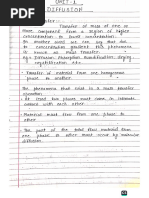 UNIT-1
DIFFUSION
Transfer of mass of one or
more component from a region of higher
concentration to lower concentration.
In another word we can say that due
to concentration gradient this phenomena
is known as mass transfer.
eg:- Diffusion Absorption, Humidification, drying
crystallization etc.
- Transfer of material from one homogenous
phase to another.
- The phenomena that exist is a mass transfer
operation.
- At least two phases must in intimate
contact with each other.
- Material must flow from one phase to
other.
- The part of the total flow material from
one phase to other must occur by molecular
diffusion.